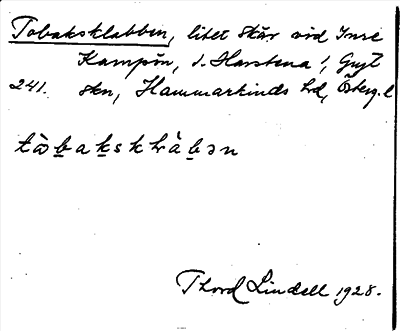 Tobaksklabben, litet skär vid Inre
Kampön, i. Harstena!, Gryt
241. skn, Hammarkinds hd, Österg. l
Thord Lindell 1928.